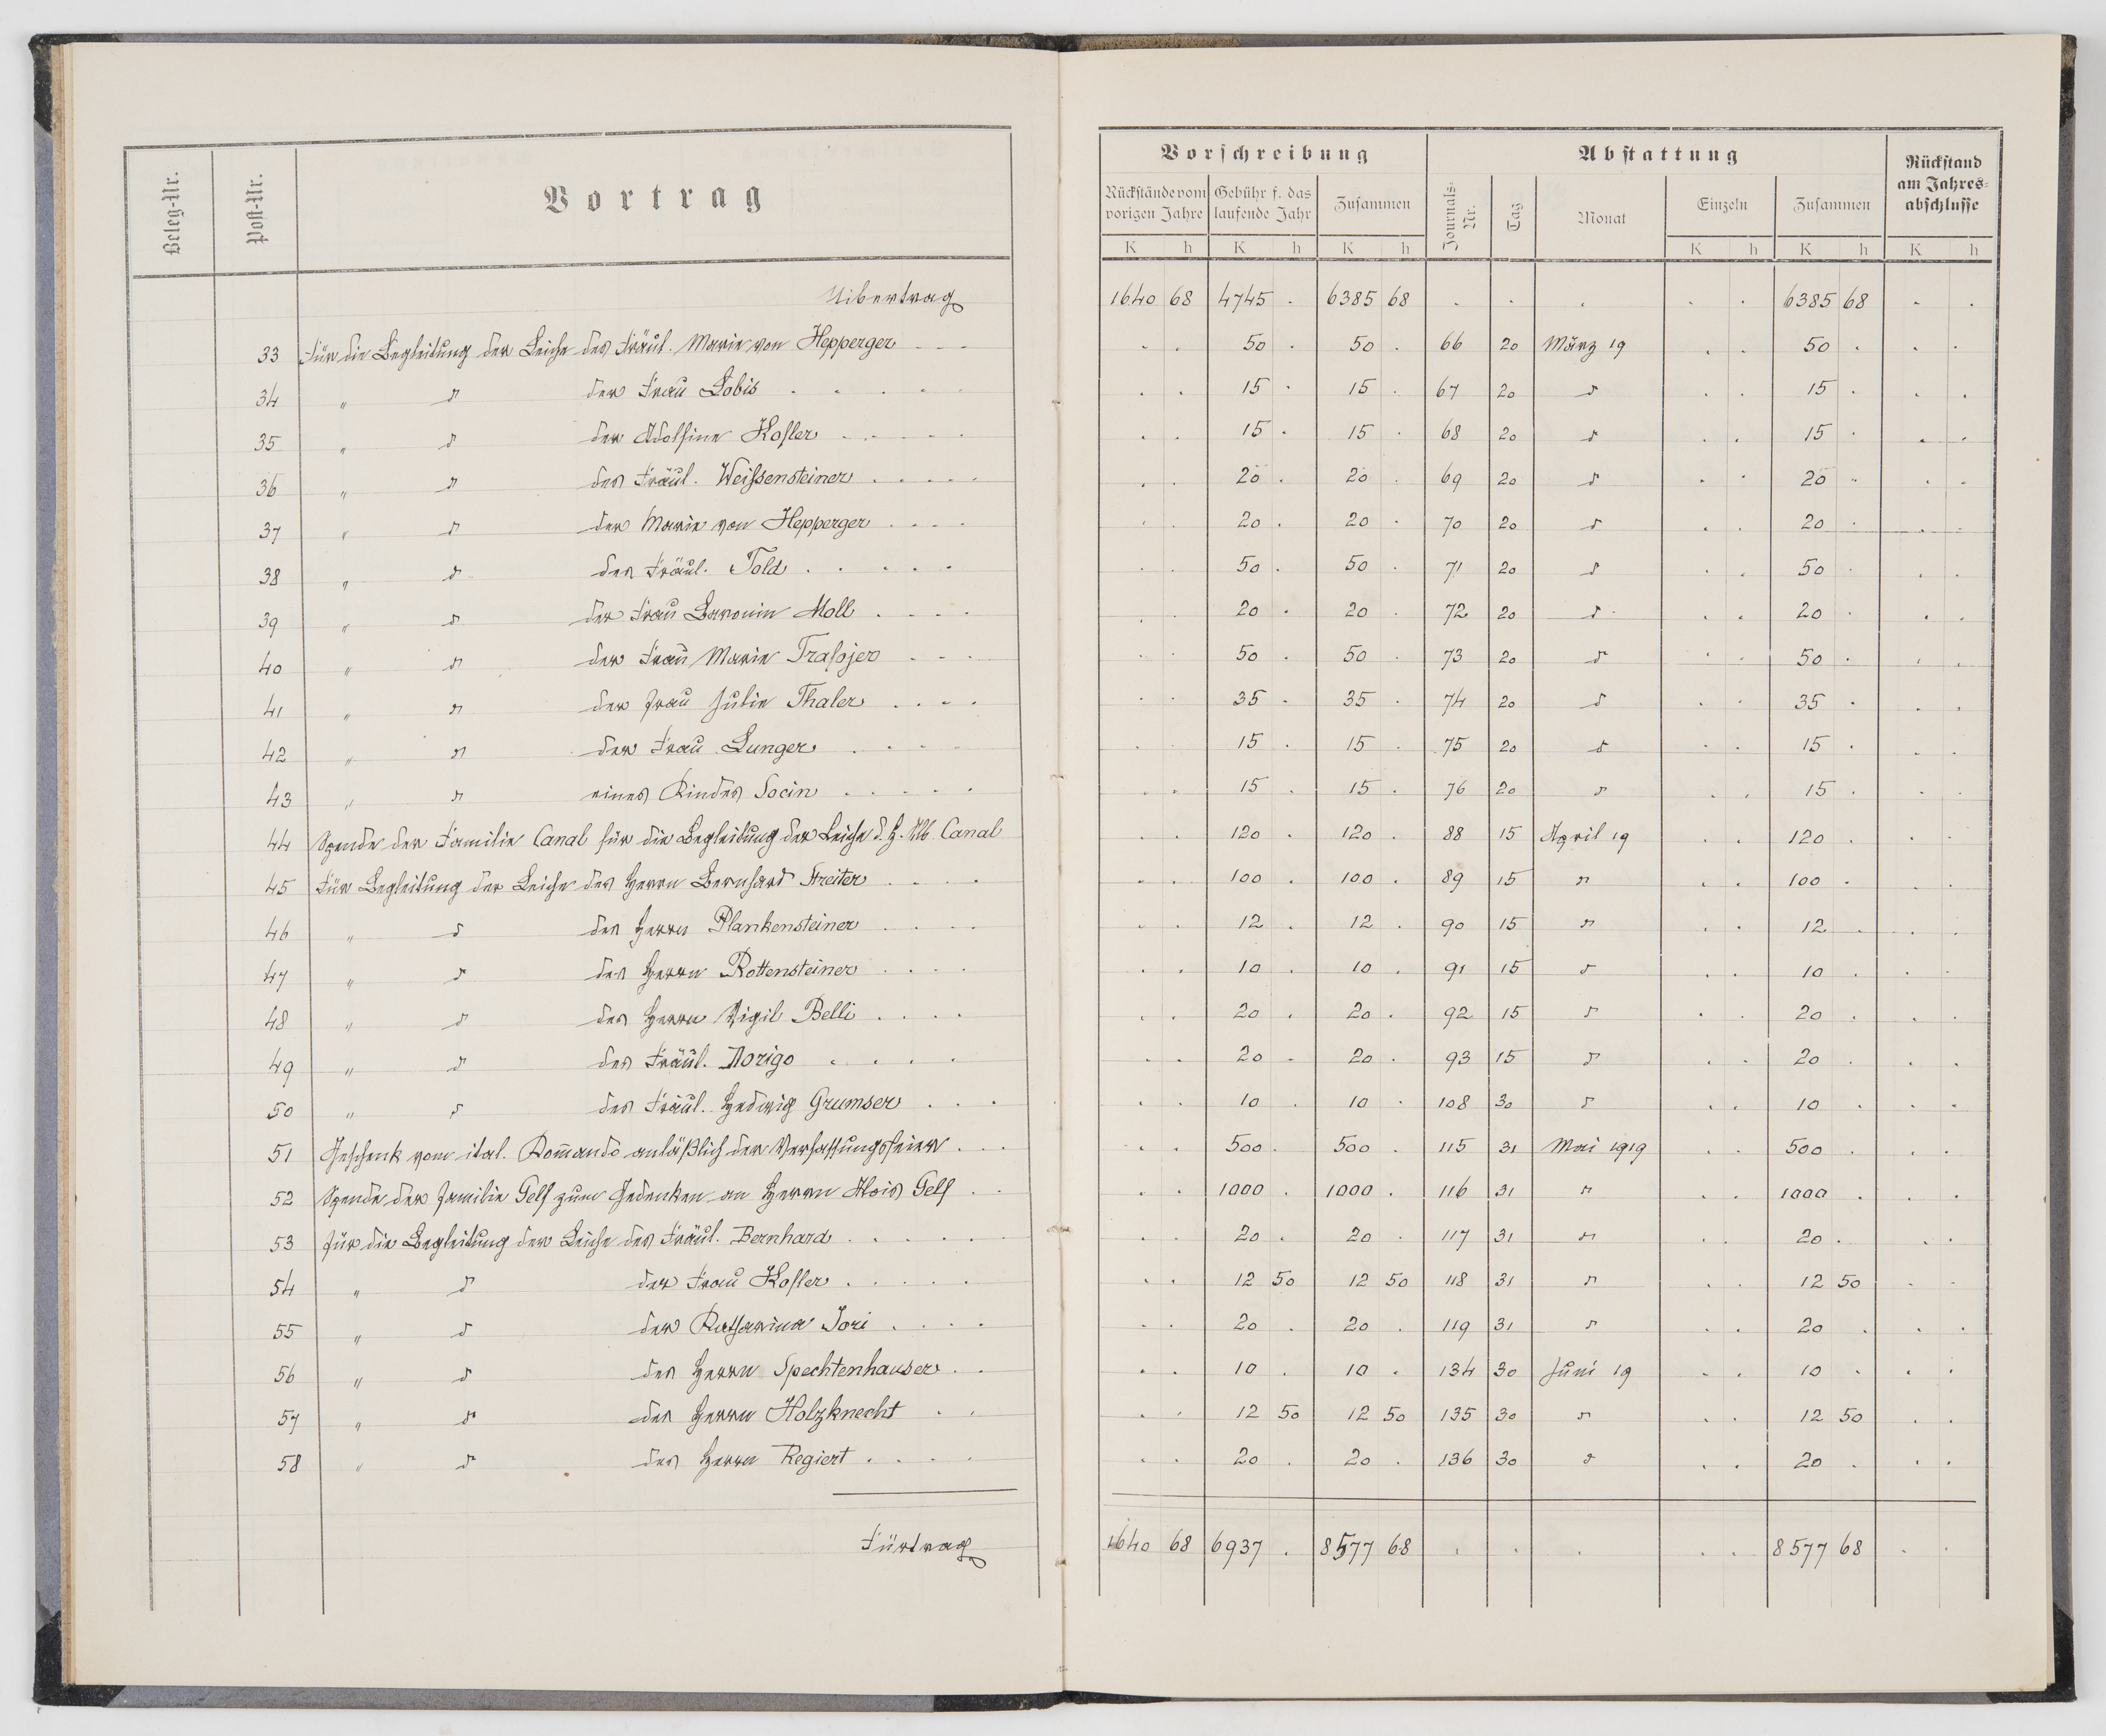 Beleg-Nr. Post-Nr. Vortrag
Vorschreibung Abstattung Rückstand am Jahres-abschlusse
Rückstände vom vorigen Jahre Gebühr f. das laufende Jahr Zusammen Journals-Nr. Tag Monat Einzeln Zusammen
K h K h K h K h K h K h
Uibertrag 1640 68 4745 . 6385 68 . . . . . 6385 68 . .
33 Für die Begleitung der Leiche des Fräul. Marie von Hepperger . . . 50 . 50 . 66 20 März 19 . . 50 . . .
34 " d der Frau Lobis . . . . 15 . 15 . 67 20 d . . 15 . . .
35 " d der Adolfine Kofler . . . . . 15 . 15 . 68 20 d . . 15 . . .
36 " d des Fräul. Weifsensteiner . . . . . 20 . 20 . 69 20 d . . 20 . . .
37 " d der Marie von Hepperger . . . . 20 . 20 . 70 20 d . . 20 . . .
38 " d des Fräul. Told . . . . . 50 . 50 . 71 20 d . . 50 . . .
39 " d der Frau Baronin Moll . . . . 20 . 20 . 72 20 d . . 20 . . .
40 " d der Frau Marie Trafojer . . . 50 . 50 . 73 20 d . . 50 . . .
41 " d der Frau Julie Thaler . . . . 35 . 35 . 74 20 d . . 35 . . .
42 " d der Frau Lunger . . . . 15 . 15 . 75 20 d . . 15 . . .
43 " d eines Kindes Socin . . . . . 15 . 15 . 76 20 d . . 15 . . .
44 Spende der Familie Canal für die Begleitung der Leiche d. H. Alb. Canal 120 . 120 . 88 15 April 19 . . 120 . . .
45 Für Begleitung der Leiche des Herrn Bernhard Streiter . . . . 100 . 100 . 89 15 d . . 100 . . .
46 " d des Herrn Plankensteiner . . . . 12 . 12 . 90 15 d . . 12 . . .
47 " d des Herrn Rottensteiner . . . . 10 . 10 . 91 15 d . . 10 . . .
48 " d des Herrn Vigil Belli . . . . 20 . 20 . 92 15 d . . 20 . . .
49 " d des Fräul. Norigo . . . . 20 . 20 . 93 15 d . . 20 . . .
50 " d des Fräul. Hedwig Grumser . . . 10 . 10 . 108 30 d . . 10 . . .
51 Geschenk vom ital. Kom̄ando anläßlich der Verfassungsfeier . . . 500 . 500 . 115 31 Mai 1919 . . 500 . . .
52 Spende der Familie Told zum Gedenken an Herrn Alois . . 1000 . 1000 . 116 31 d . . 1000 . . .
53 Für die Begleitung der Leiche des Fräul. Bernhard . . . . . 20 . 20 . 117 31 d . . 20 . . .
54 " d der Frau Kofler . . . . . 12 50 12 50 118 31 d . . 12 50 . .
55 " d der Katharina Jori . . . . 20 . 20 . 119 31 d . . 20 . . .
56 " d des Herrn Spechtenhauser . . 10 . 10 . 134 30 Juni 19 . . 10 . . .
57 " d des Herrn Holzknecht . . 12 50 12 50 135 30 d . . 12 50 . .
58 " d des Herrn Regiert . . . . 20 . 20 . 136 30 d . . 20 . . .
Fürtrag 1640 68 6937 . 8577 68 . . . . . 8577 68 . .